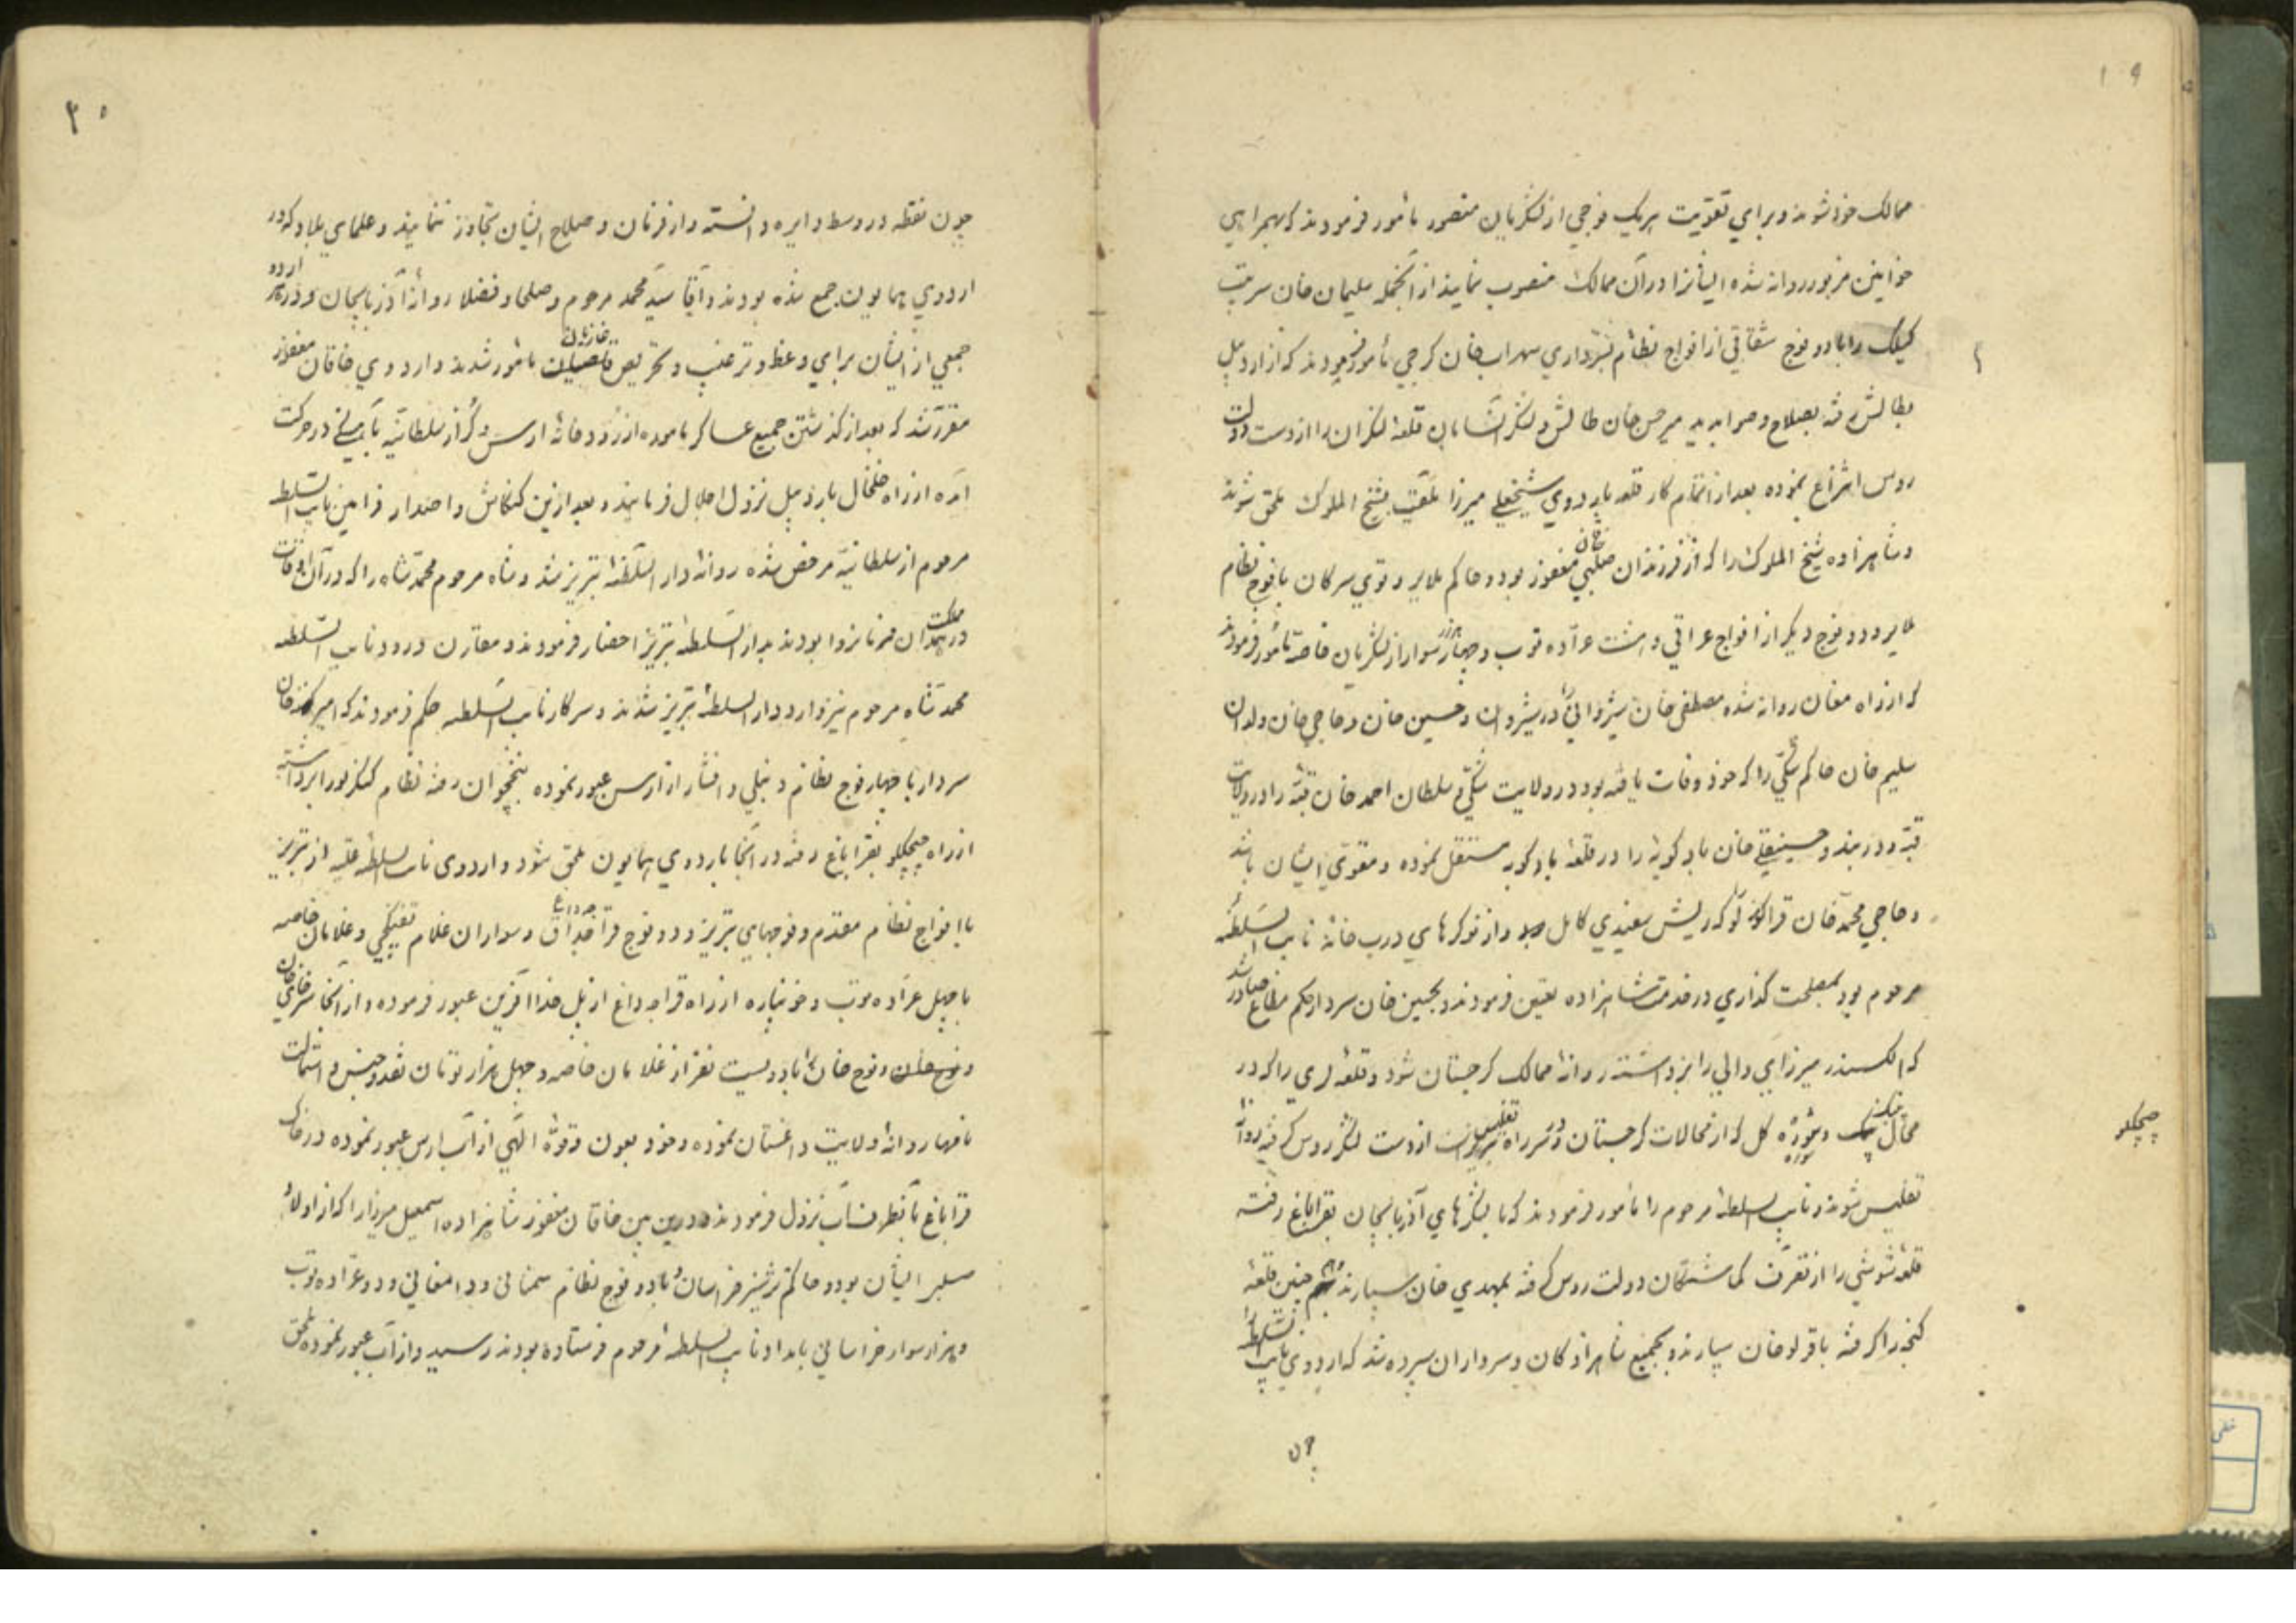 ۱۹
ممالک خود شوند و برای تقویت هریک فوجی از لشکریان منصور مأمور فرمودند که بهمراهی
خوانین مزبور روانه شده ایشانرا در آن ممالک منصوب نمایند از آنجمله سلیمان خان سرتیپ
را با دو فوج شقاقی از افواج نظام بسرداری سهراب خان کرجی مأمور فرمودند که از اردبیل
بطالش رفته بصلاح و صوابدید میرحسن خان طالش و لشکر آنسامان قلعۀ لنکران را از دست دولت
روس انتزاع نموده بعد از اتمام کار قلعه باردوی شیخعلی میرزا ملقب بشیخ الملوک ملحق شوند
و شاهزاده شیخ الملوک را که از فرزندان صلبی خاقان مغفور بود و حاکم ملایر و توی سرکان با فوج نظام
ملایر و دو فوج دیکر از افواج عراقی و هشت عرآده توپ و چهار هزار سوار از لشکریان خاصه مأمور فرمودند
که از راه مغان روانه شده مصطفی خان شیروانی را در شیروان و حسین خان و حاجی خان ولدان
سلیم خان حاکم شکی را که خود وفات یافته بود در ولایت شکی و سلطان احمد خان قبه را در ولایت
قبه و دربند و حسینقلی خان بادکوبه را در قلعۀ بادکوبه مستقل نموده و مقوی ایشان باشند
و حاجی محمد خان قراکوزلو که ریش سفیدی کامل و از نوکرهای درب خانۀ نایب السلطنه
مرحوم بود بمصلحت کذاری در خدمت شاهزاده تعیین فرمودند و بحسین خان سردار حکم مطاع صادر شد
که الکسندر میرزای والی را برداشته روانۀ ممالک کرجستان شود و قلعۀ لری را که در
محال و شوره کل که از محالات کرجستان و در سر راه تفلیس است از دست لشکر روس کرفته روانۀ
چپچکلو
تفلیس شوند و نایب السلطنۀ مرحوم را مأمور فرمودند که با لشکرهای آذربایجان بقراباغ رفته
قلعۀ شوشی را از تصرف کماشتکان دولت روس کرفته بمهدی خان سپارند و همچنین قلعۀ
کنجه را کرفته باقرلو خان سپارند و بجمیع شاهزادکان و سرداران سپرده شد که اردوی نایب السلطنه را
چون
۲۰
چون نقطه در وسط دایره دانسته و از فرمان و صلاح ایشان تجاوز ننمایند و علمای بلاد که در
اردوی همایون جمع شده بودند و آقا سید محمد مرحوم و صلحا و فضلا روانۀ آذربایجان و در هر اردو
جمعی از ایشان برای وعظ و ترغیب و تحریص غازیان مأمور شدند و اردوی خاقان مغفور
مقرر شد که بعد از کذشتن جمیع عساکر مأموره از رودخانۀ ارس و کر از سلطانیه بآهستکی در حرکت
آمده از راه خلخال باردبیل نزول اجلال فرمایند و بعد از این کنکاش و اصدار فرامین نایب السلطنه
مرحوم از سلطانیه مرخص شده روانۀ دار السلطنۀ تبریز شد و شاه مرحوم محمد شاه را که در آن اوقات
در مملکت همدان فرمانروا بودند بدار السلطنۀ تبریز احضار فرمودند و مقارن ورود نایب السلطنه
محمد شاه مرحوم نیز وارد دار السلطنۀ تبریز شدند و سرکار نایب السلطنه حکم فرمودند که امیر خان
سردار با چهار فوج نظام دنبلی و افشار از ارس عبور نموده بنخجوان رفته نظام کنکرلو را برداشته
از راه چپچکلو بقراباغ رفته در آنجا باردوی همایون ملحق شود و اردوی نایب السلطنۀ علیه از تبریز
با افواج نظام مقدم و فوجهای تبریز و دو فوج قراجه داغ و سواران غلام تفنکچی و غلامان خاصه
با چهل عرآده توپ و خمپاره از راه قراجه داغ از پل خدا آفرین عبور فرموده و از آنجا سرخای خان
و نوح خان را با دویست نفر از غلامان خاصه و چهل هزار تومان نقد و جنس و استمالت
نامها روانۀ ولایت داغستان نموده و خود بعون و قوۀ الهی از آب ارس عبور نموده در خاک
قراباغ بآنطرف آب نزول فرمودند و در این بین خاقان مغفور شاهزاده اسمعیل میرزا را که از اولاد
صلبی ایشان بود و حاکم ترشیز خراسان با دو فوج نظام سمنانی و دامغانی و دو عرآده توپ
و هزار سوار خراسانی بامداد نایب السلطنۀ مرحوم فرستاده بودند رسید و از آب عبور نموده ملحق